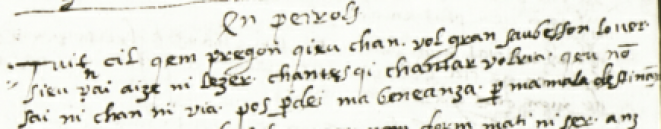 En peirols
Tuit cil qem pregon qieu chan. vol gran saubesson lo ver
sieu nai aize ni lezer. chantes qi chantar volria. qeu nō
sai ni chan ni via. pos ꝑdei ma beneanza. ꝑ ma mala destinan
dorm mati ni ser. anz